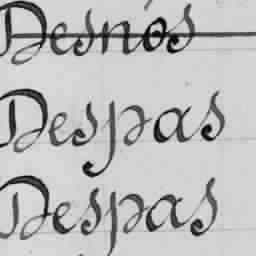 Desnós
Despas
Despas